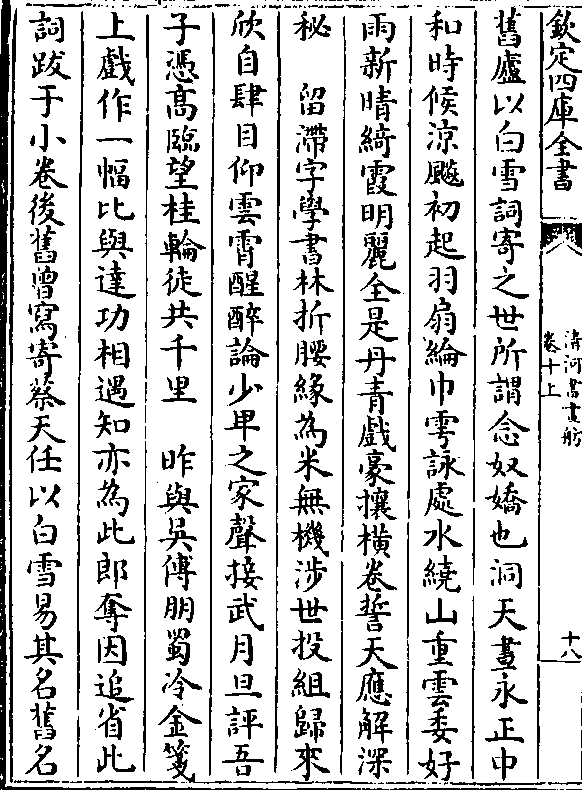 欽定四庫全書
清河書畫舫
卷十上
十八
舊廬以白雪詞寄之世所謂念奴嬌也洞天晝永正中
和時候涼飈初起羽扇綸巾雩詠處水繞山重雲委好
雨新晴綺霞明麗全是丹青戲豪攘橫卷誓天應解深
秘　留滯字學書林折腰緣為米無機涉世投組歸來
欣自肆目仰雲霄醒醉論少卑之家聲接武月旦評吾
子憑高臨望桂輪徒共千里　昨與吳傅朋蜀冷金箋
上戲作一幅比與達功相遇知亦為此郎奪因追省此
詞跋于小卷後舊曾寫寄蔡天任以白雪易其名舊名